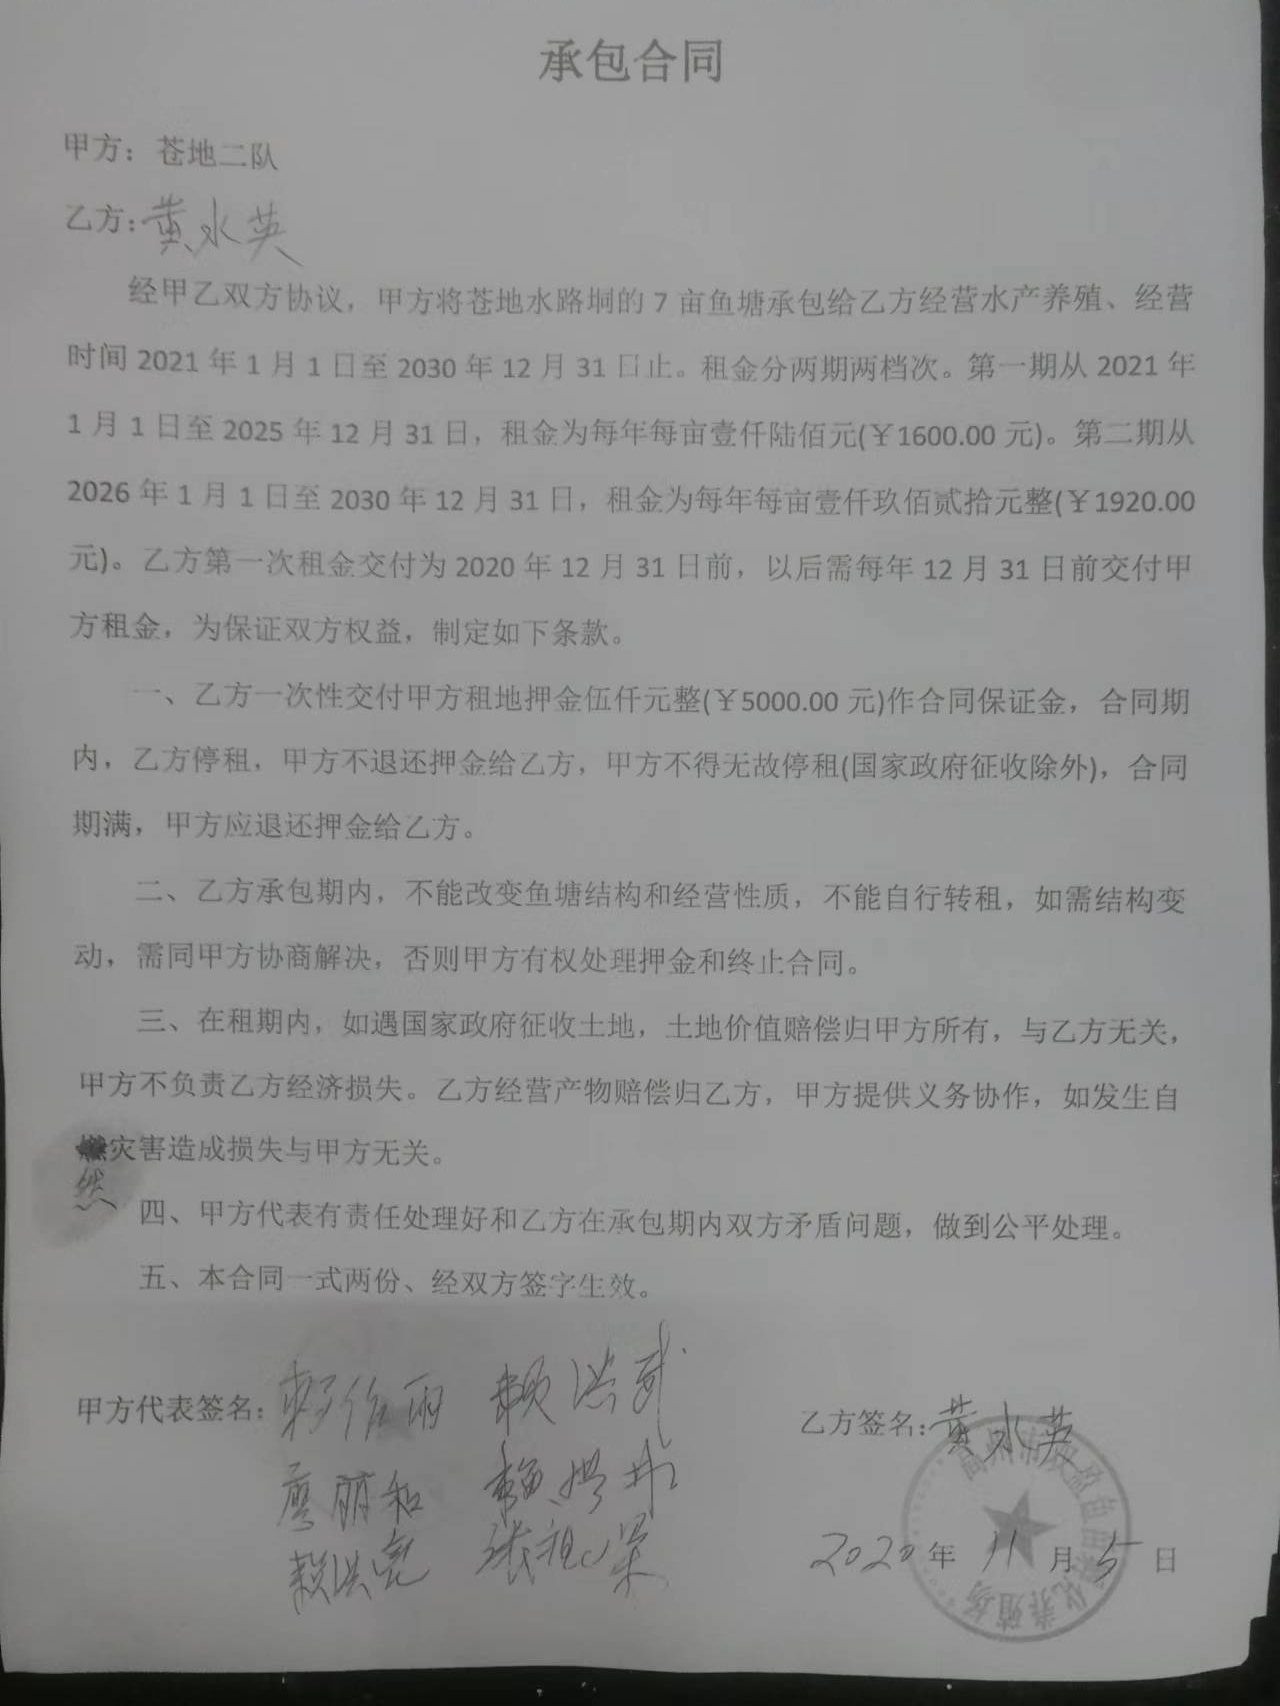 承包合同
甲方：苍地二队
乙方：黄水英
经甲乙双方协议，甲方将苍地水路垌的 7 亩鱼塘承包给乙方经营水产养殖、经营
时间 2021 年 1 月 1 日至 2030 年 12 月 31 日止。租金分两期两档次。第一期从 2021 年
1 月 1 日至 2025 年 12 月 31 日，租金为每年每亩壹仟陆佰元(￥1600.00 元)。第二期从
2026 年 1 月 1 日至 2030 年 12 月 31 日，租金为每年每亩壹仟玖佰贰拾元整(￥1920.00
元)。乙方第一次租金交付为 2020 年 12 月 31 日前，以后需每年 12 月 31 日前交付甲
方租金，为保证双方权益，制定如下条款。
一、乙方一次性交付甲方租地押金伍仟元整(￥5000.00 元)作合同保证金，合同期
内，乙方停租，甲方不退还押金给乙方，甲方不得无故停租(国家政府征收除外)，合同
期满，甲方应退还押金给乙方。
二、乙方承包期内，不能改变鱼塘结构和经营性质，不能自行转租，如需结构变
动，需同甲方协商解决，否则甲方有权处理押金和终止合同。
三、在租期内，如遇国家政府征收土地，土地价值赔偿归甲方所有，与乙方无关，
甲方不负责乙方经济损失。乙方经营产物赔偿归乙方，甲方提供义务协作，如发生自
灾害造成损失与甲方无关。
然
四、甲方代表有责任处理好和乙方在承包期内双方矛盾问题，做到公平处理。
五、本合同一式两份、经双方签字生效。
甲方代表签名：赖作雨 赖洪武
乙方签名：黄水英
廖丽和
赖洪亮 张祖深
2020 年 11 月 5 日